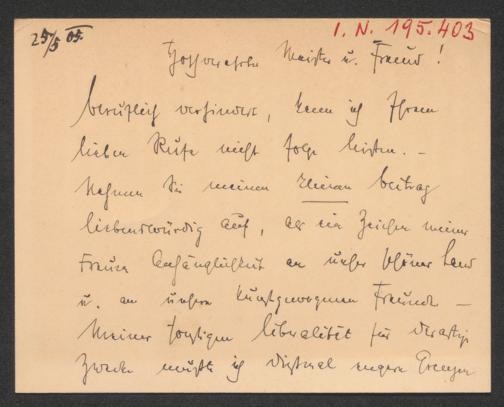 25/5 05.
I. N. 195.403
Hochverehrter Meister u. Freund!
beruflich verhindert, kann ich Ihrem
lieben Rufe nicht folge leisten. –
Nehmen Sie meinen kleinen beitrag
liebenswürdig auf, als ein Zeichen meiner
treuen Anhänglichkeit an unser schönes Land
u. an unsere kunstgewogenen Freunde –
Meiner sonstigen liberalität für derartige
Zwecke mußte ich diesmal engere Grenzen